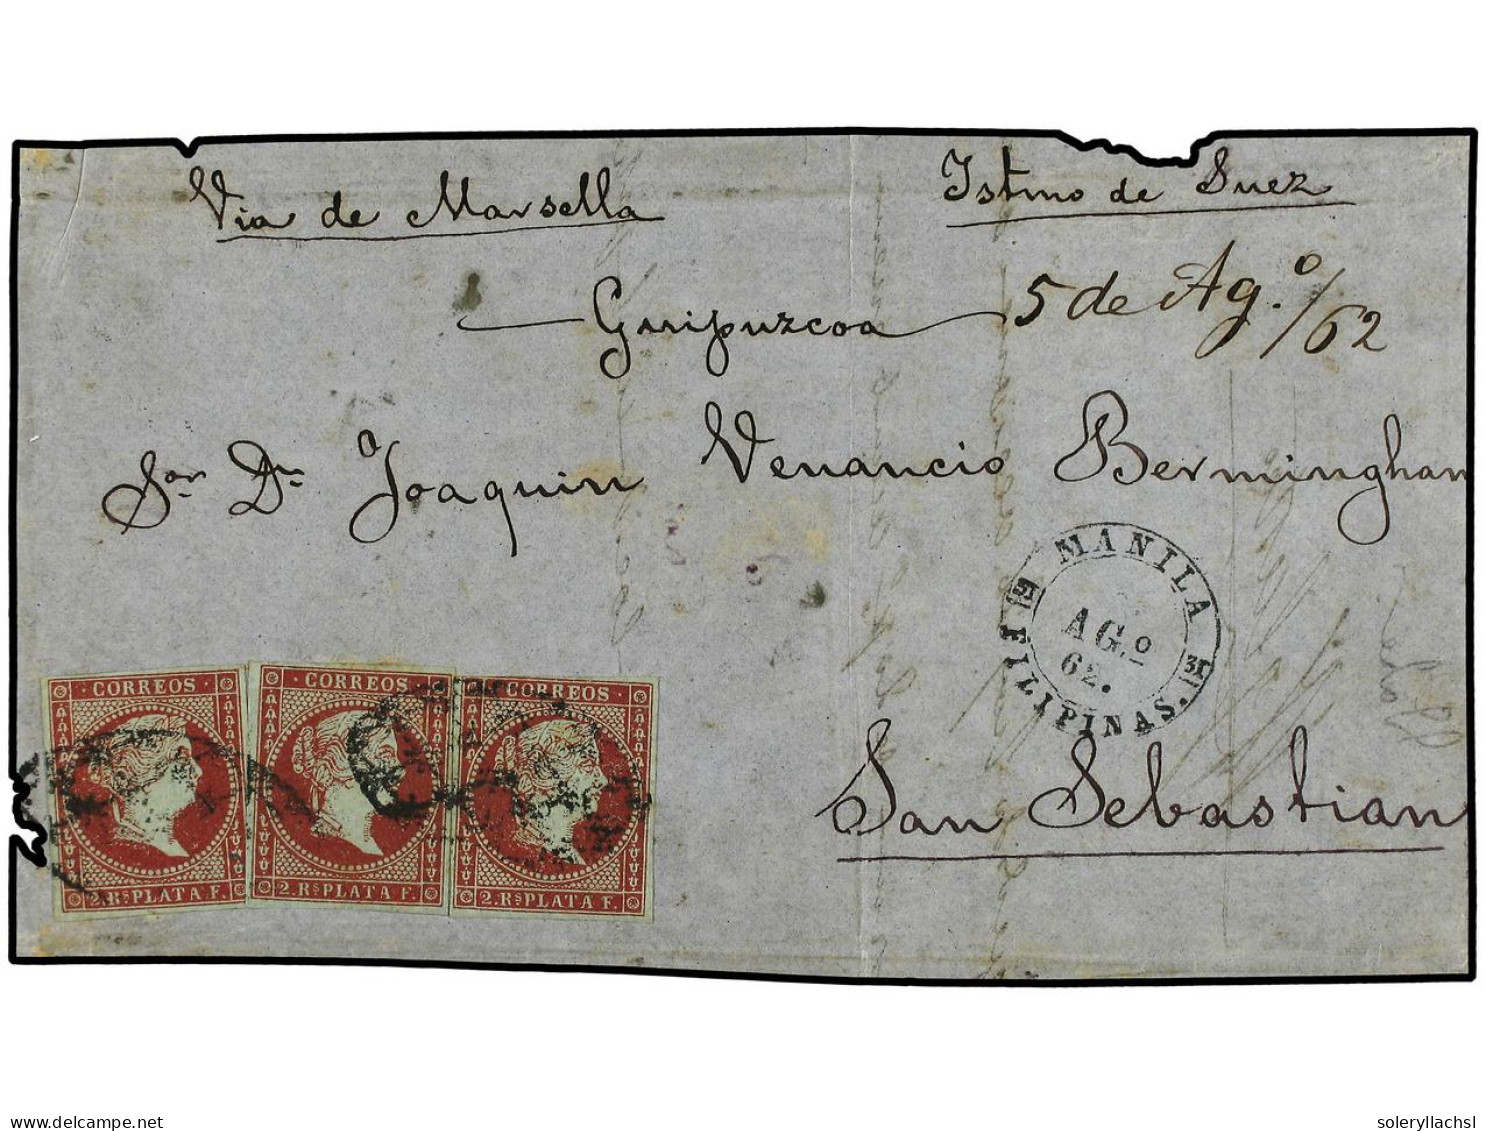 Via de Marsella
Istmo de Suez
Guipuzcoa
5 de Ag.º/62
Sor Dn Joaquin Venancio Bermingham
MANILA
AG.º
62.
FILIPINAS.
San Sebastian
CORREOS
2. Rs PLATA F.
CORREOS
2. Rs PLATA F.
CORREOS
2. Rs PLATA F.
delcampe.net
soleryllachsl